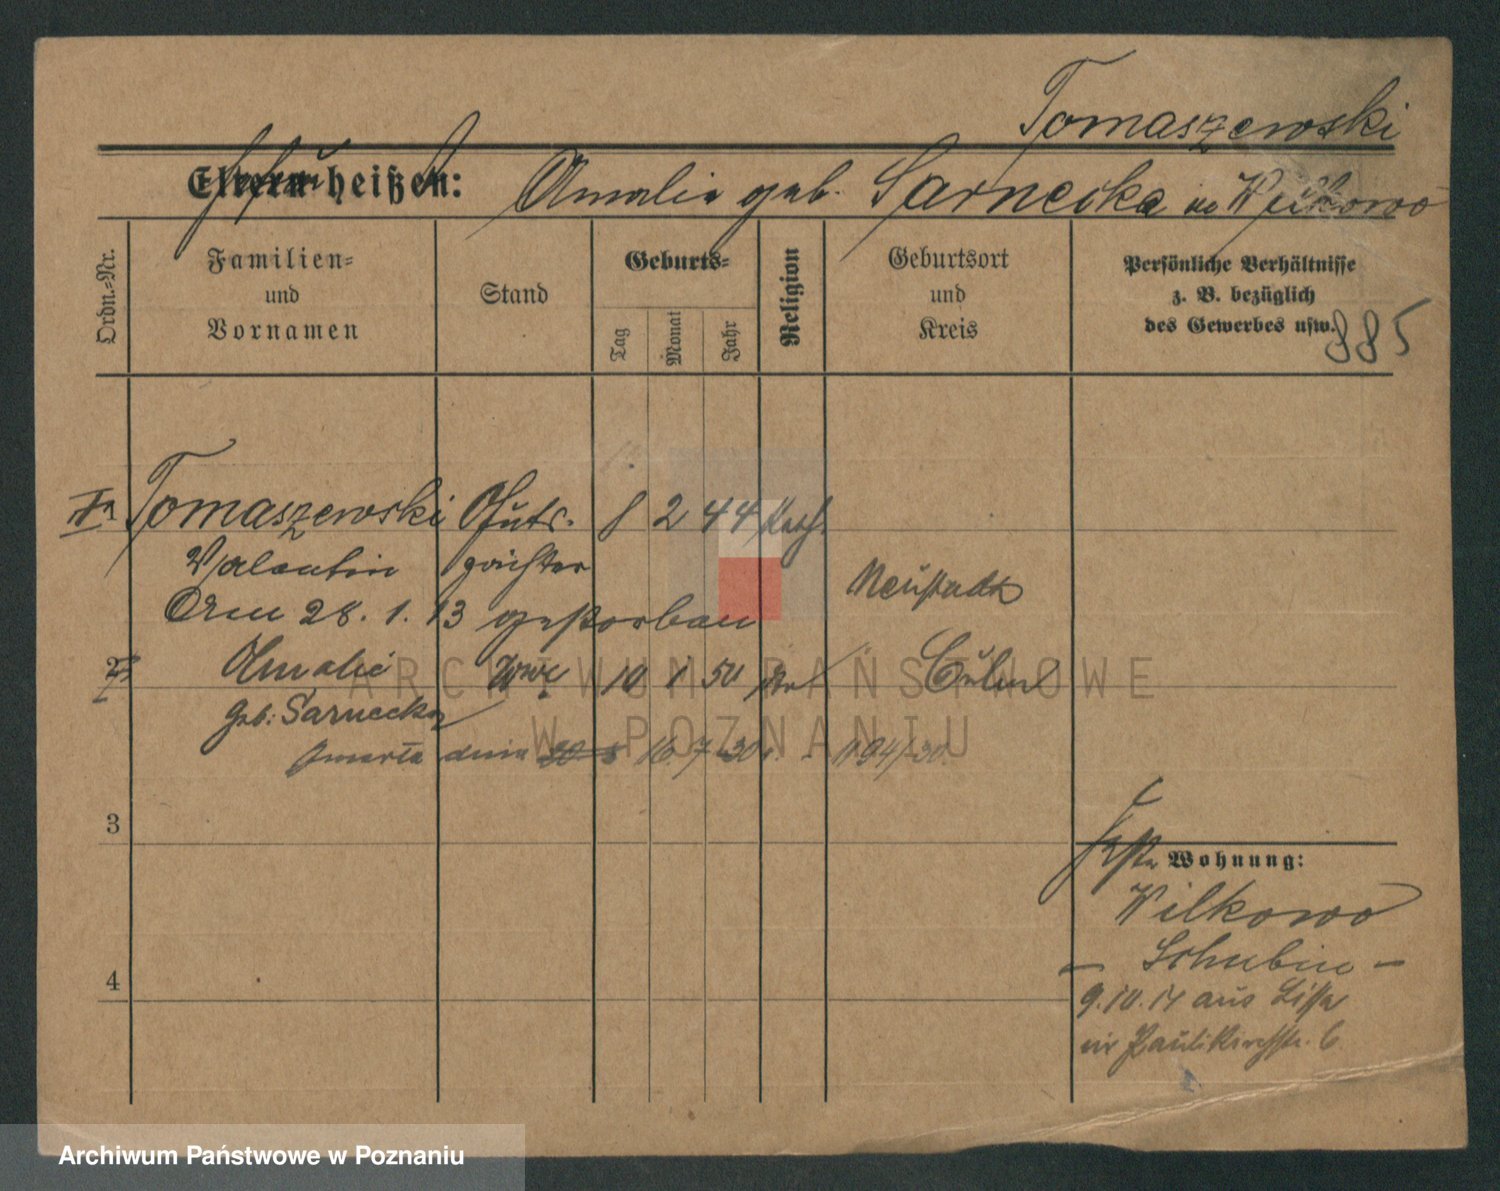 Tomaszewski
Eltern heißen: Amalie geb. Sarnecka in Wilkowo
Ordn.-Nr.
Familien-
und
Vornamen
Stand
Geburts-
Tag
Monat
Jahr
Religion
Geburtsort
und
Kreis
Persönliche Verhältnisse
z. B. bezüglich
des Gewerbes usw.
885
1 Tomaszewski Guts- 8 2 44 Kath.
Valentin pächter
Neustadt
Am 28. 1. 13 gestorben
2 Amalie Wwe 10 1 50
Culm
geb. Sarnecka
zmarła dnia 16.7.30 r. - 1194/30
3
Wohnung:
Wilkowo
- Schubin -
4
9.10.14 aus Lissa
Paulikirchstr. 6
ARCHIWUM PAŃSTWOWE
W POZNANIU
Archiwum Państwowe w Poznaniu